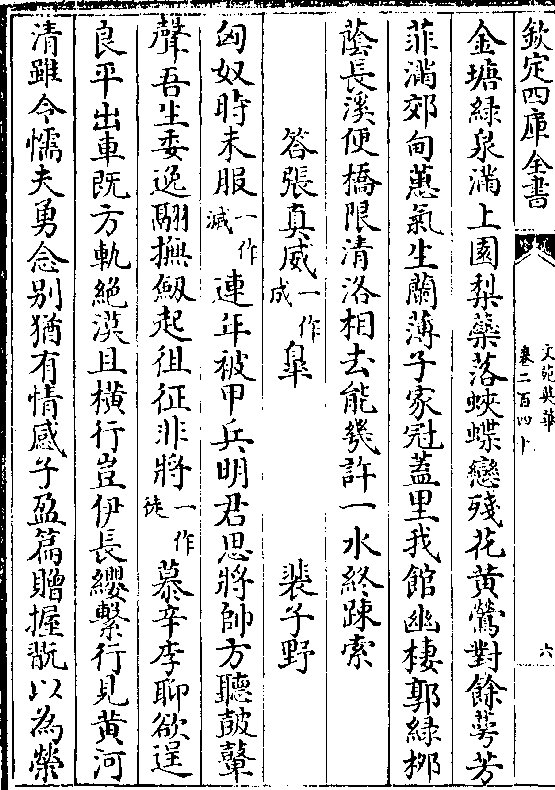 欽定四庫全書
文苑英華
卷二百四十
六
金塘綠泉滿上園梨藥落蛺蝶戀殘花黄鶯對餘萼芳
菲滿郊甸蕙氣生蘭薄子家冠蓋里我館幽棲郭綠桞
蔭長溪便橋限清洛相去能幾許一水終踈索
答張真威一作成臯　裴子野
匈奴時未服一作滅連年被甲兵明君思將帥方聽皷鼙
聲吾生委逸翮撫劔起徂征非將一作徒慕辛李聊欲逞
良平出車既方軌絶漠且横行豈伊長纓繫行見黄河
清雖令懦夫勇念别猶有情感子盈篇贈握翫以為榮